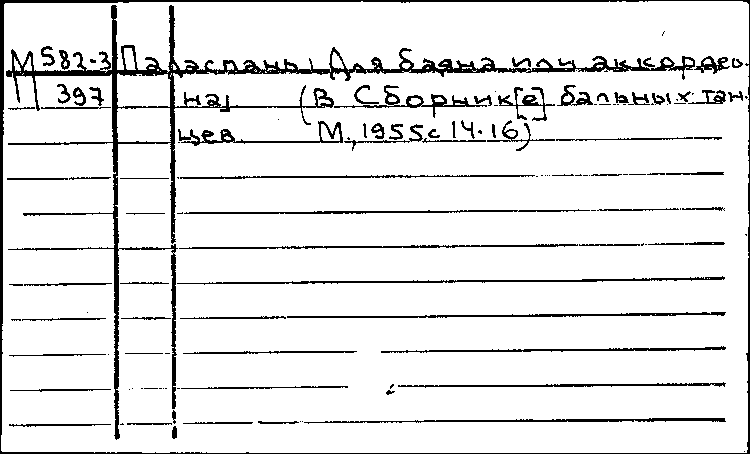 М 582-3 Па де спань. Для баяна или аккордео-
П 397 на. (В Сборник[е] бальных тан-
цев. М., 1955. с 14-16)